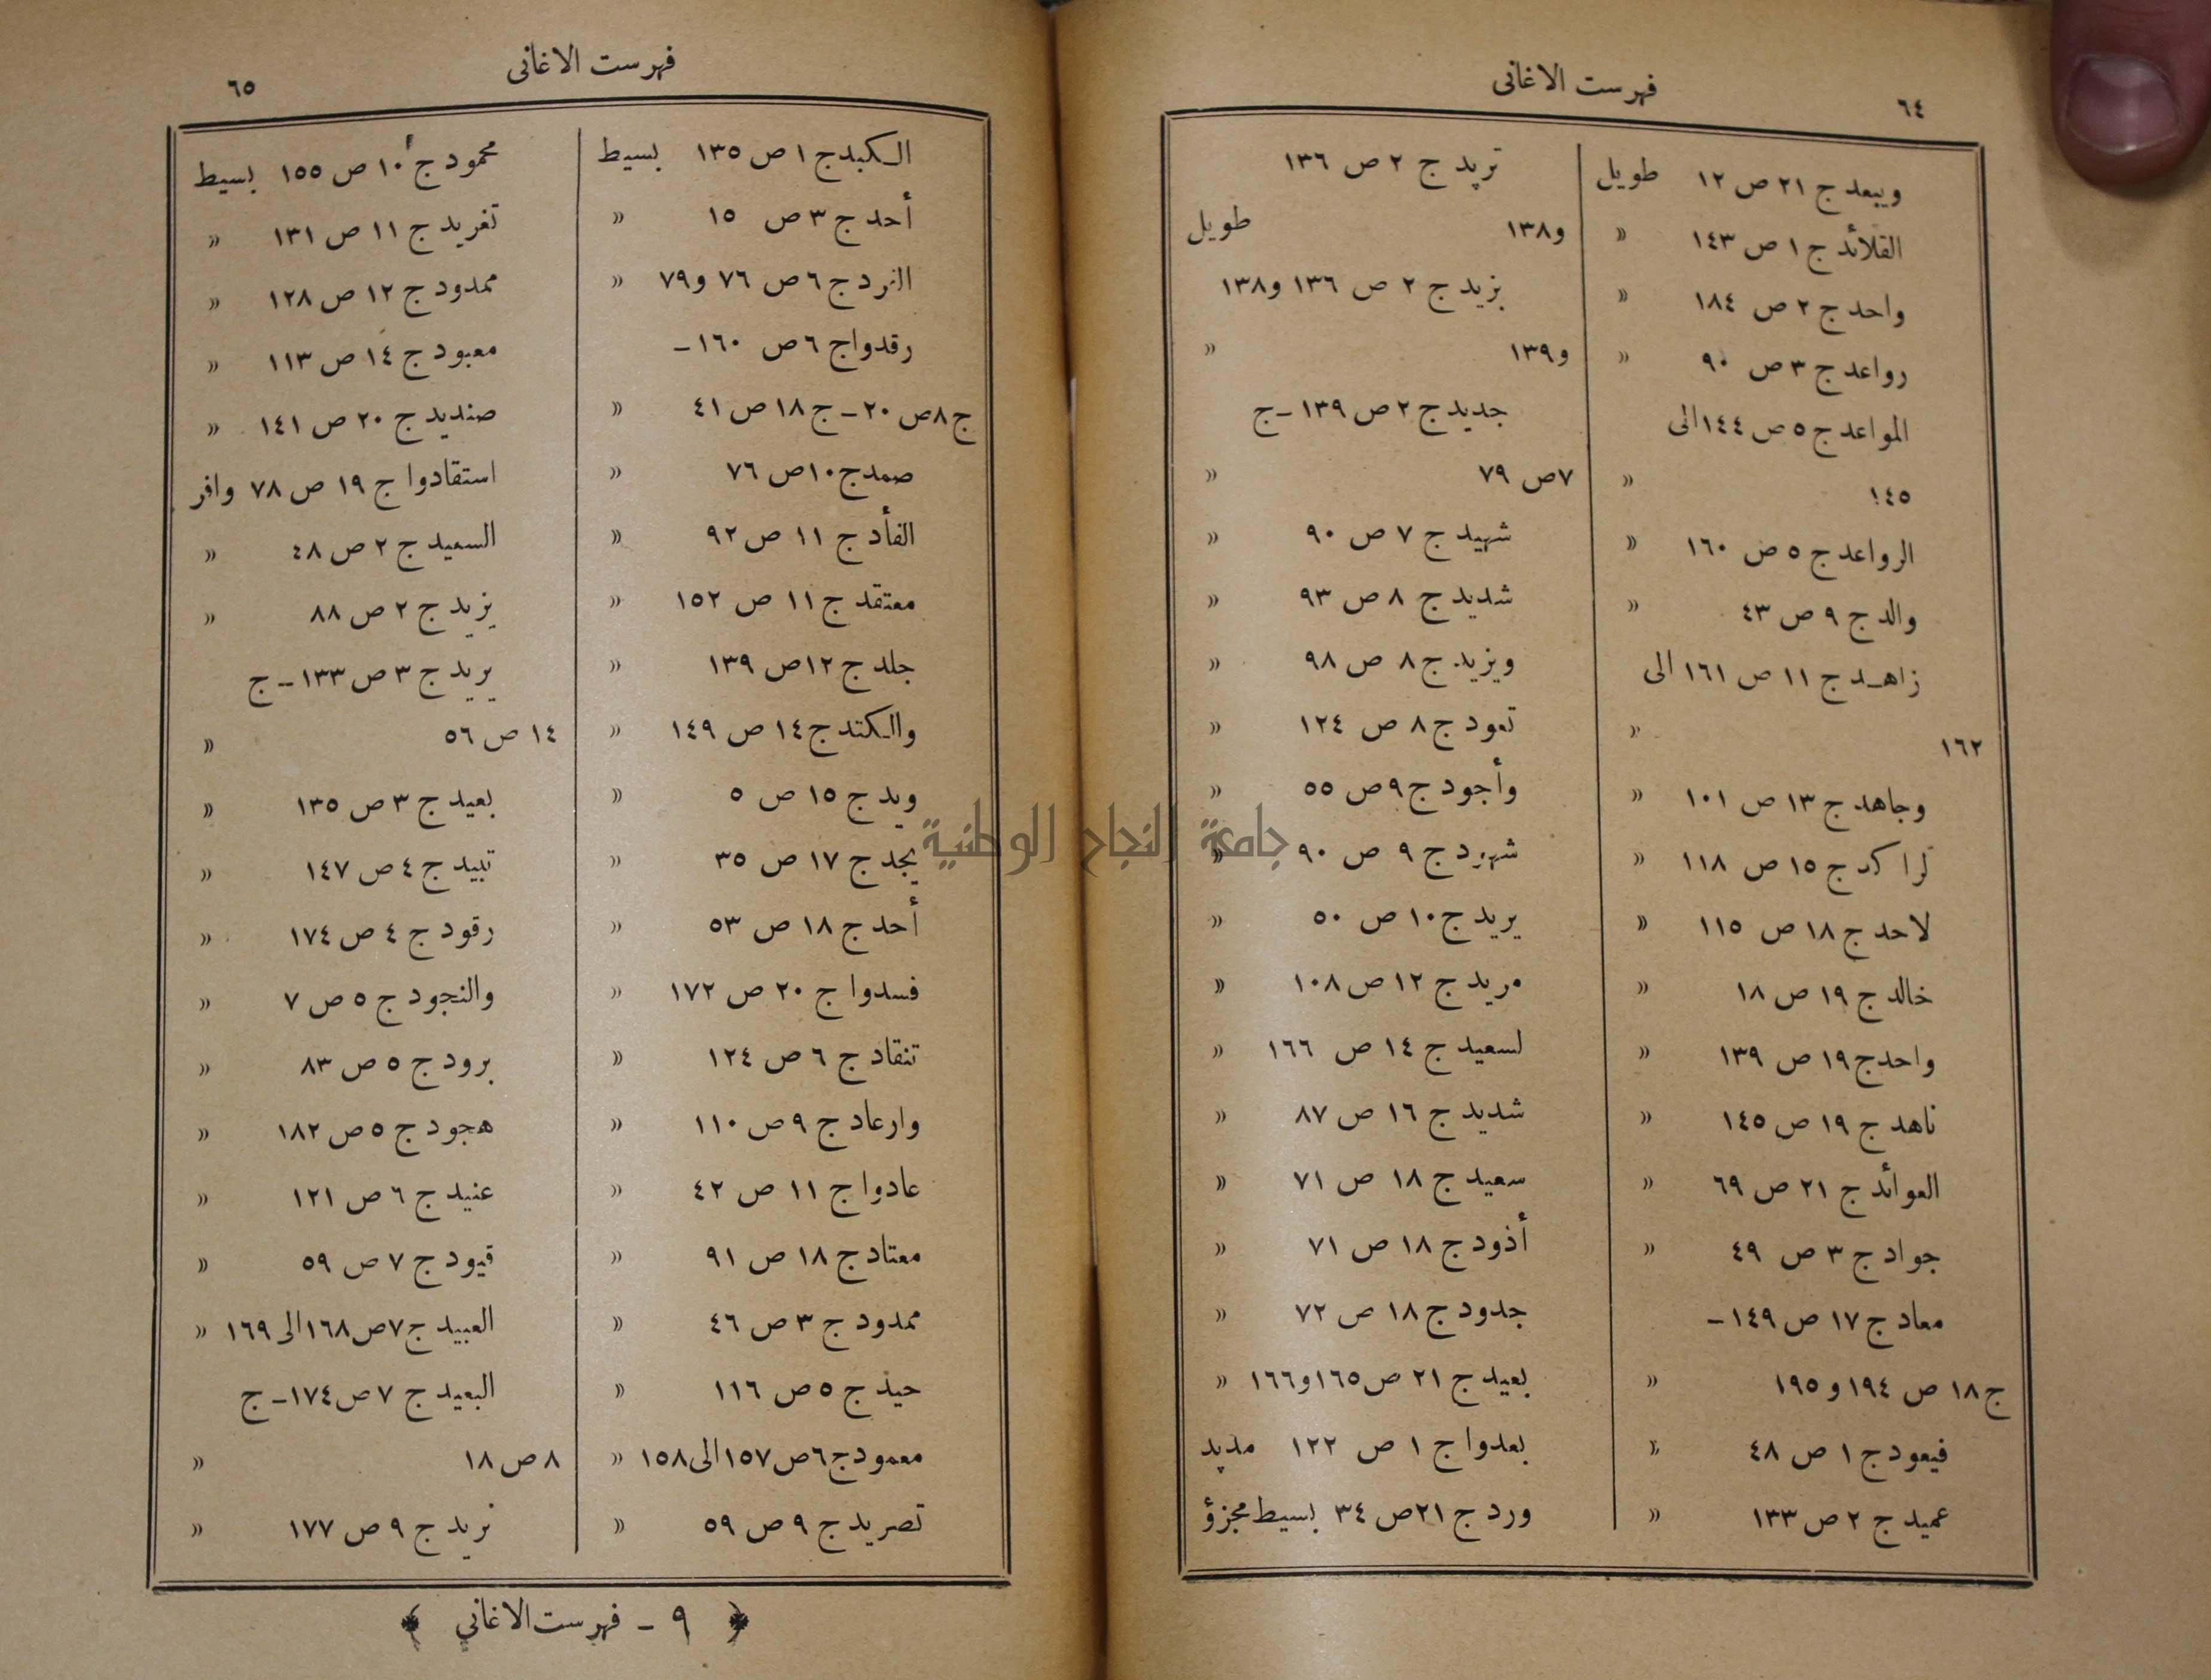 ٦٤
فهرست الاغانى
ويبعد ج ٢١ ص ١٢ طويل
القلائد ج ١ ص ١٤٣ «
واحد ج ٢ ص ١٨٤ «
رواعد ج ٣ ص ٩٠ «
المواعد ج ٥ ص ١٤٤ الى
١٤٥ «
الرواعد ج ٥ ص ١٦٠ «
والد ج ٩ ص ٤٣ «
زاهـد ج ١١ ص ١٦١ الى
١٦٢ «
وجاهد ج ١٣ ص ١٠١ «
لراكد ج ١٥ ص ١١٨ «
لاحد ج ١٨ ص ١١٥ «
خالد ج ١٩ ص ١٨ «
واحد ج ١٩ ص ١٣٩ «
ناهد ج ١٩ ص ١٤٥ «
العوائد ج ٢١ ص ٦٩ «
جواد ج ٣ ص ٤٩ «
معاد ج ١٧ ص ١٤٩ –
ج ١٨ ص ١٩٤ و ١٩٥ «
فيعود ج ١ ص ٤٨ «
عميد ج ٢ ص ١٣٣ «
تريد ج ٢ ص ١٣٦
و١٣٨ طويل
يزيد ج ٢ ص ١٣٦ و١٣٨
و١٣٩ «
جديد ج ٢ ص ١٣٩ – ج
٧ ص ٧٩ «
شهيد ج ٧ ص ٩٠ «
شديد ج ٨ ص ٩٣ «
ويزيد ج ٨ ص ٩٨ «
تعود ج ٨ ص ١٢٤ «
وأجود ج ٩ ص ٥٥ «
ج ٩ ص ٩٠ «
يريد ج ١٠ ص ٥٠ «
مريد ج ١٢ ص ١٠٨ «
لسعيد ج ١٤ ص ١٦٦ «
شديد ج ١٦ ص ٨٧ «
سعيد ج ١٨ ص ٧١ «
أذود ج ١٨ ص ٧١ «
جدود ج ١٨ ص ٧٢ «
بعيد ج ٢١ ص ١٦٥ و١٦٦ «
بعدوا ج ١ ص ١٢٢ مديد
ورد ج ٢١ ص ٣٤ بسيط مجزؤ
فهرست الاغانى
٦٥
الـكبد ج ١ ص ١٣٥ بسيط
أحد ج ٣ ص ١٥ «
النرد ج ٦ ص ٧٦ و٧٩ «
رقدوا ج ٦ ص ١٦٠ –
ج ٨ ص ٢٠ – ج ١٨ ص ٤١ «
صمد ج ١٠ ص ٧٦ «
الفأد ج ١١ ص ٩٢ «
معتقد ج ١١ ص ١٥٢ «
جلد ج ١٢ ص ١٣٩ «
والـكتد ج ١٤ ص ١٤٩ «
ويد ج ١٥ ص ٥ «
يجد ج ١٧ ص ٣٥ «
أحد ج ١٨ ص ٥٣ «
فسدوا ج ٢٠ ص ١٧٢ «
تنقاد ج ٦ ص ١٢٤ «
وارعاد ج ٩ ص ١١٠ «
عادوا ج ١١ ص ٤٢ «
معتاد ج ١٨ ص ٩١ «
ممدود ج ٣ ص ٤٦ «
حيد ج ٥ ص ١١٦ «
معمود ج ٦ ص ١٥٧ الى ١٥٨ «
تصريد ج ٩ ص ٥٩ «
محمود ج ١٠ ص ١٥٥ بسيط
تغريد ج ١١ ص ١٣١ «
ممدود ج ١٢ ص ١٢٨ «
معبود ج ١٤ ص ١١٣ «
صنديد ج ٢٠ ص ١٤١ «
استقادوا ج ١٩ ص ٧٨ وافر
السعيد ج ٢ ص ٤٨ «
يزيد ج ٢ ص ٨٨ «
يريد ج ٣ ص ١٣٣ – ج
١٤ ص ٥٦ «
بعيد ج ٣ ص ١٣٥ «
تبيد ج ٤ ص ١٤٧ «
رقود ج ٤ ص ١٧٤ «
والنجود ج ٥ ص ٧ «
برود ج ٥ ص ٨٣ «
هجود ج ٥ ص ١٨٢ «
عنيد ج ٦ ص ١٢١ «
قيود ج ٧ ص ٥٩ «
العبيد ج ٧ ص ١٦٨ الى ١٦٩ «
البعيد ج ٧ ص ١٧٤ – ج
٨ ص ١٨ «
نريد ج ٩ ص ١٧٧ «
﴿ ٩ – فهرست الاغاني ﴾
جامعة النجاح الوطنية